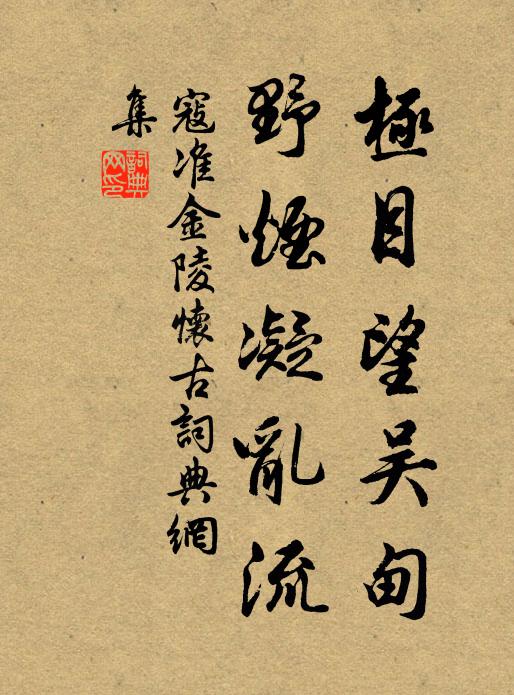 極目望吴甸
野煙凝亂流
寇准金陵懷古詞典網
集
詞典
网印